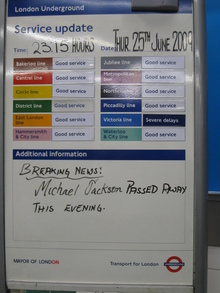 London Underground
Service update
Time: 23:15 HOURS Date: THUR 25TH JUNE 2009
Bakerloo line Good service Jubilee line Good service
Central line Good service Metropolitan line Good service
Circle line Good service Northern line Good service
District line Good service Piccadilly line Good service
East London line Good service Victoria line Severe delays
Hammersmith & City line Good service Waterloo & City line Good service
Additional Information
BREAKING NEWS:
Michael Jackson PASSED AWAY
THIS EVENING.
MAYOR OF LONDON Transport for London